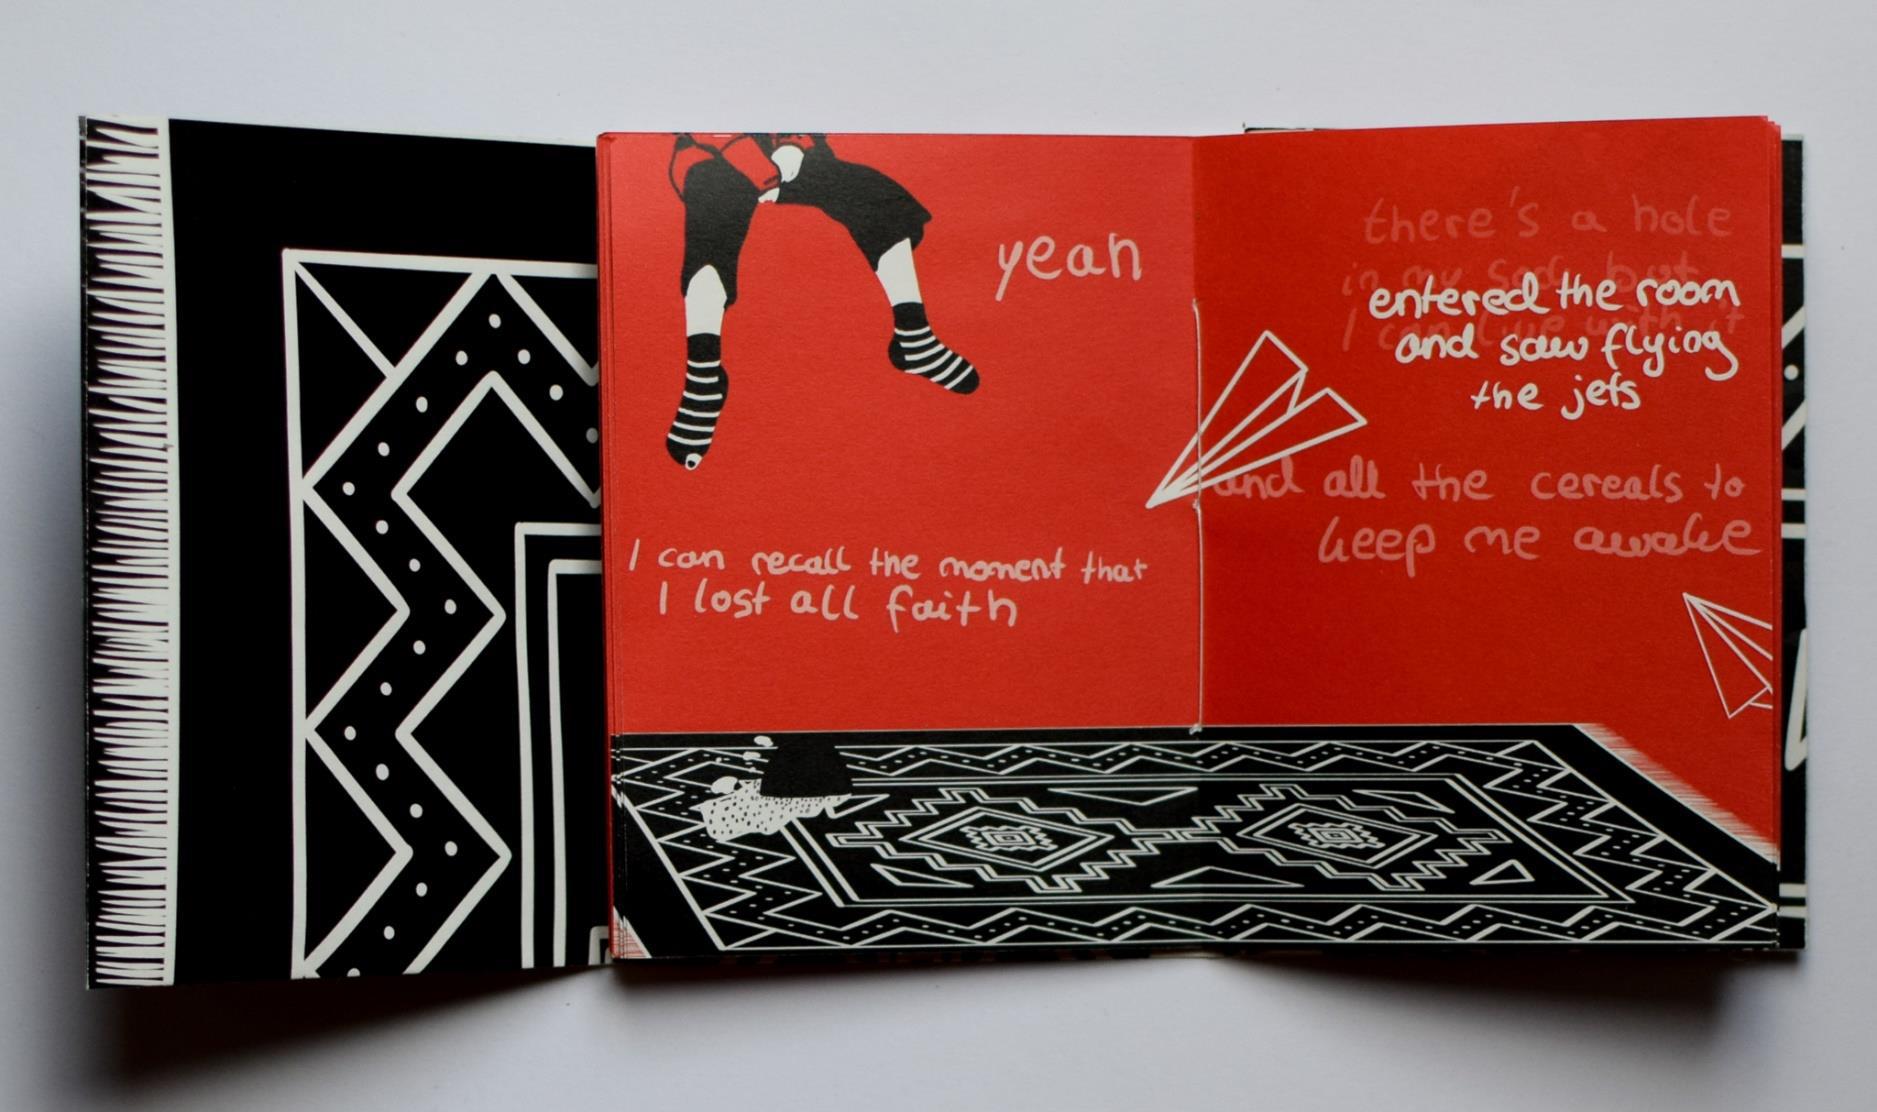 yeah
I can recall the moment that
I lost all faith
there's a hole
in my sock but
I can live with it
entered the room
and saw flying
the jets
and all the cereals to
keep me awake